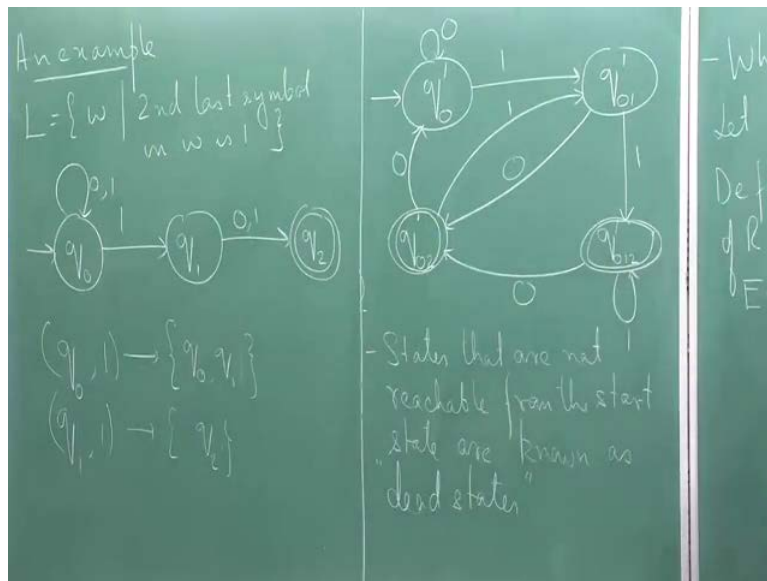 An example
L = { w | 2nd last symbol
in w is 1 }
0,1
1
0,1
q₀
q₁
q₂
(q₀, 1) → {q₀, q₁}
(q₁, 1) → { q₂}
0
q₀'
1
q₀₁'
1
0
0
1
q₀₂'
q₀₁₂'
0
1
- States that are not
reachable from the start
state are known as
"dead states"
- Wh
Let
Def
of R
E